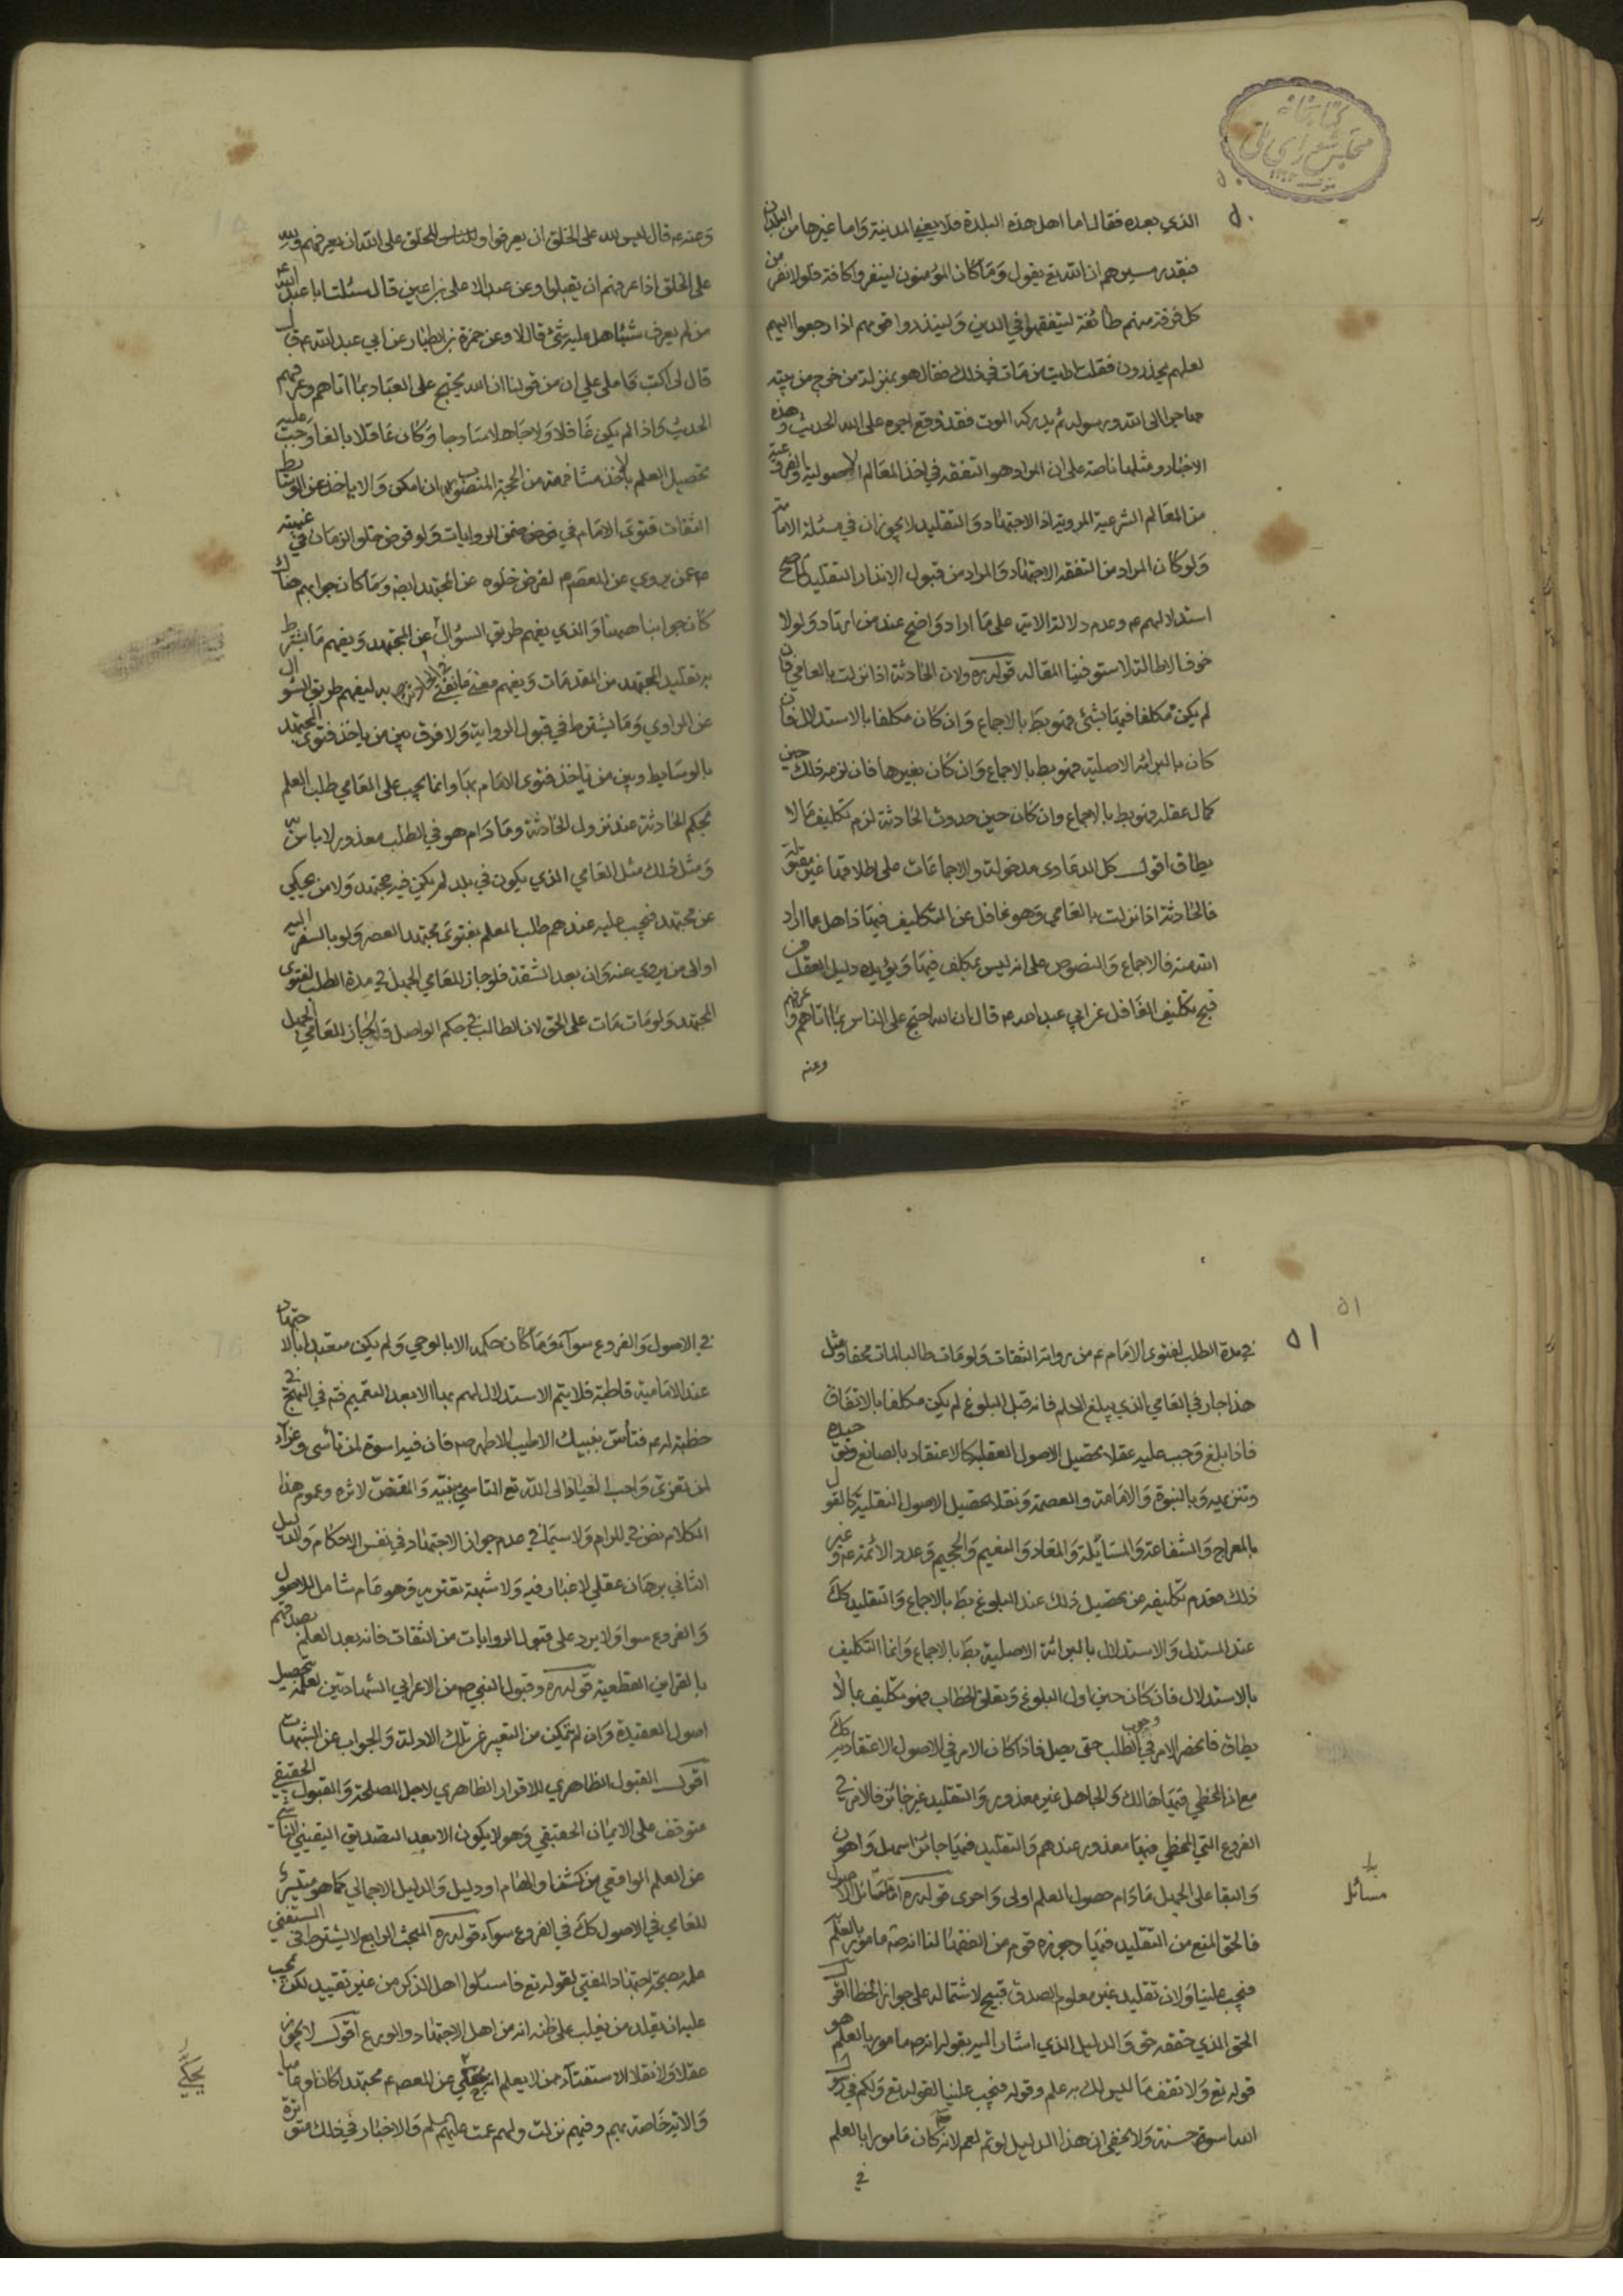 كتابخانه
مجلس شورای ملی
٥٠
الذي بعده فقال اما اهل هذه البلدة فلا يعني المدينة واما غيرها من البلدان
فبقدر مسيرهم ان الله تع يقول وما كان المؤمنون لينفروا كافة فلولا نفر من
كل فرقة منهم طائفة ليتفقهوا في الدين ولينذروا قومهم اذا رجعوا اليهم
لعلهم يحذرون فقلت ارايت من مات في ذلك فقال هو بمنزلة من خرج من بيته
مهاجرا الى الله ورسوله ثم يدركه الموت فقد وقع اجره على الله الحديث وهذه
الاخبار ومثلها ناصة على ان المراد هو التفقه في اخذ المعالم الاصولية والفرعية
من المعالم الشرعية المروية اذ الاجتهاد والتقليد لا يجوزان في مسئلة الامامة
ولو كان المراد من التفقه الاجتهاد والمراد من قبول الانذار التقليد لما صح
استدلالهم ع وعدم دلالة الاية على ما اراد واضح عند من ارتاد ولولا
خوف الاطالة لاستوفينا المقاله قوله ره ولان الحادثة اذا نزلت بالعامي فان
لم يكن مكلفا فيها بشئ فهو بط بالاجماع وان كان مكلفا بالاستدلال فان
كان بالبرائة الاصلية فهو بط بالاجماع وان كان بغيرها فان لزمه ذلك حين
كمال عقله فهو بط بالاجماع وان كان حين حدوث الحادثة لزم تكليف ما لا
يطاق اقول كل الدعاوى مدخولة والاجماعات على اطلاقها غير مقبولة
فالحادثة اذا نزلت بالعامي وهو غافل عن التكليف فيها ذاهل عما اراد
الله منه فالاجماع والنصوص على انه ليس بمكلف فيها ويؤيده دليل العقل من
قبح تكليف الغافل عن ابي عبد الله ع قال ان الله احتج على الناس بما اتاهم وعرفهم
وعنه
وعنه ع قال ليس لله على الخلق ان يعرفوا وللناس للخلق على الله ان يعرفهم ولله
على الخلق اذا عرفهم ان يقبلوا وعن عبد الاعلى بن اعين قال سئلت ابا عبد الله ع
من لم يعرف شيئا هل عليه شئ قال لا وعن حمزة بن الطيار عن ابي عبد الله ع قال
قال لي اكتب فاملى علي ان من قولنا ان الله يحتج على العباد بما اتاهم وعرفهم
الحديث واذا لم يكن غافلا ولا جاهلا ساذجا وكان عاقلا بالغا وجبت عليه
تحصيل العلم بالاخذ مشافهة من الحجة المنصوب ان امكن والا ياخذ عن الوسائط
الثقات فتوى الامام في ضمن الروايات ولو فرض خلو الزمان في غيبته
ع عمن يروي عن المعصوم لفرض خلوه عن المجتهد ايضه وما كان جوابهم هناك
كان جوابنا ههنا والذي يفهم طريق السؤال عن المجتهد ويفهم ما يشترط
به تقليد المجتهد من المقدمات ويفهم معنى ما يفتي به ليفهم طريق السؤال
عن الراوي وما يشترط في قبول الرواية ولا فرق بين من ياخذ فتوى المجتهد
بالوسايط وبين من ياخذ فتوى الامام بها وانما يجب على العامي طلب العلم
بحكم الحادثة عند نزول الحادثة وما دام هو في الطلب معذور لا باس
ومثل ذلك مثل العامي الذي يكون في بلد لم يكن فيه مجتهد ولا من يحكي
عن مجتهد فيجب عليه عندهم طلب العلم بفتوى مجتهد العصر ولو بالسفر اليه
او الى من يروي عنه وان بعد الشقة فلو جاز للعامي الجهل في مدة الطلب لفتوى
المجتهد ولو مات مات على الحق لان الطالب في حكم الواصل لجاز للعامي الجهل
٥١
٥١
في مدة الطلب لفتوى الامام ع من رواة الثقات ولو مات طالبا لمات محقا ومثل
هذا جار في العامي الذي يبلغ الحلم فانه قبل البلوغ لم يكن مكلفا بالاتفاق
فاذا بلغ وجب عليه عقلا تحصيل الاصول العقلية كالاعتقاد بالصانع وتوحيده
وتنزيهه وبالنبوة والامامة والعصمة ونقلا تحصيل الاصول النقلية كالقول
بالمعراج والشفاعة والمسائلة والمعاد والنعيم والجحيم وعدد الائمة ع وغير
ذلك فعدم تكليفه من تحصيل ذلك عند البلوغ بط بالاجماع والتقليد كك
عند المستدل والاستدلال بالبرائة الاصلية بط بالاجماع وانما التكليف
بالاستدلال فان كان حين اول البلوغ وتعلق الخطاب فهو تكليف بما لا
يطاق فانحصر الامر في وجوب الطلب حتى يصل فاذا كان الامر في الاصول الاعتقادية كك
مع ان المخطي فيها هالك والجاهل غير معذور والتقليد غير جائز فالامر في
الفروع التي المخطي فيها معذور عندهم والتقليد فيها جائز اسهل واهون
والبقا على الجهل ما دام حصول العلم اولى واحرى قوله ره اما مسائل الاصول
فالحق المنع من التقليد فيها وجوزه قوم من الفقهاء لنا انه ص مامور بالعلم
فيجب علينا ولان تقليد غير معلوم الصدق قبيح لاشتماله على جواز الخطا اقول
الحق الذي حققه حق والدليل الذي اشار اليه بقوله انه ص مامور بالعلم هو
قوله تع ولا تقف ما ليس لك به علم وقوله فيجب علينا لقوله تع ولكم في رسول
الله اسوة حسنة ولا يخفى ان هذا الدليل لو تم لعم لانه ص كان مامورا بالعلم
في
بدل
مسائل
في الاصول والفروع سواء وما كان حكمه الا بالوحي ولم يكن متعبدا بالاجتهاد
عند الامامية قاطبة فلا يتم الاستدلال لهم بها الا بعد التعميم فته في النهج في
خطبة له ع فتأس بنبيك الاطيب الاطهر ص فان فيه اسوة لمن تأسى وعزاء
لمن تعزى واحب العباد الى الله تع التاسي بنبيه والمقتص لاثره وعموم هذا
الكلام نص في المرام ولا سيما في عدم جواز الاجتهاد في نفس الاحكام والدليل
الثاني برهان عقلي لا غبار فيه ولا شبهة تعتريه وهو عام شامل للاصول
والفروع سوا ولا يرد على قبول الروايات من الثقات فانه بعد العلم بصدقهم
بالقراين القطعية قوله ره وقبول النبي ص من الاعرابي الشهادتين لعلمه بتحصيل
اصول العقيدة وان لم يتمكن من التعبير عن تلك الادلة والجواب عن الشبهات
اقول القبول الظاهري للاقرار الظاهري لاجل المصلحة والقبول الحقيقي
متوقف على الايمان الحقيقي وهو لا يكون الا بعد التصديق اليقيني الناشي
من العلم الواقعي من كشف او الهام او دليل والدليل الاجمالي كما هو متيسر
للعامي في الاصول كك في الفروع سواء قوله ره المبحث الرابع لا يشترط في المستفتي
علمه بصحة اجتهاد المفتي لقوله تع فاسئلوا اهل الذكر من غير تقييد لكن يجب
عليه ان يقلد من يغلب على ظنه انه من اهل الاجتهاد والورع اقول لا يجوز
عقلا ولا نقلا الاستفتاء ممن لا يعلم انه يحكي عن المعصوم ع مجتهدا كان او عاميا
والاية خاصة بهم وفيهم نزلت ولهم عمت عليهم سلم والاخبار في ذلك متواترة
يحكي